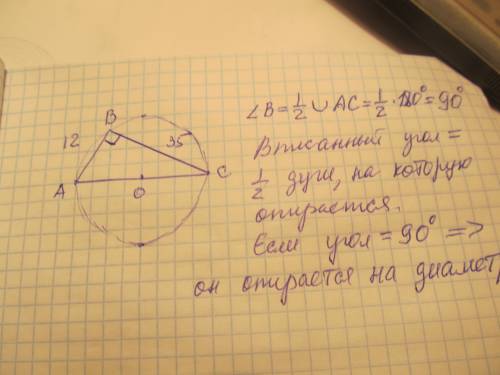 ∠B = 1/2 ∪ AC = 1/2 · 180° = 90°
Вписанный угол =
1/2 дуги, на которую
опирается.
Если угол = 90° =>
он опирается на диамет
B
12
35
A
O
C